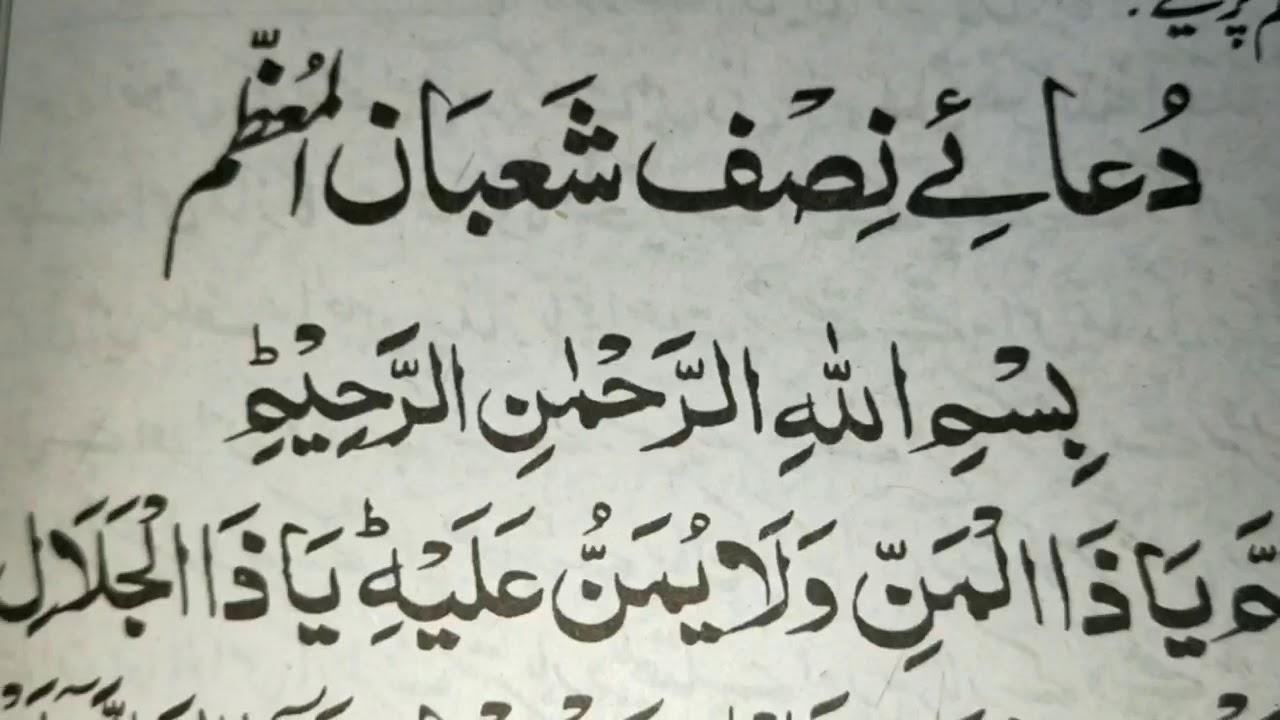 دُعائے نِصْف شَعبَان المُعَظَّم
بِسْمِ اللّٰهِ الرَّحْمٰنِ الرَّحِيْمِ ؕ
يَا ذَا الْمَنِّ وَلَا يُمَنُّ عَلَيْهِ ؕ يَا ذَا الْجَلَالِ